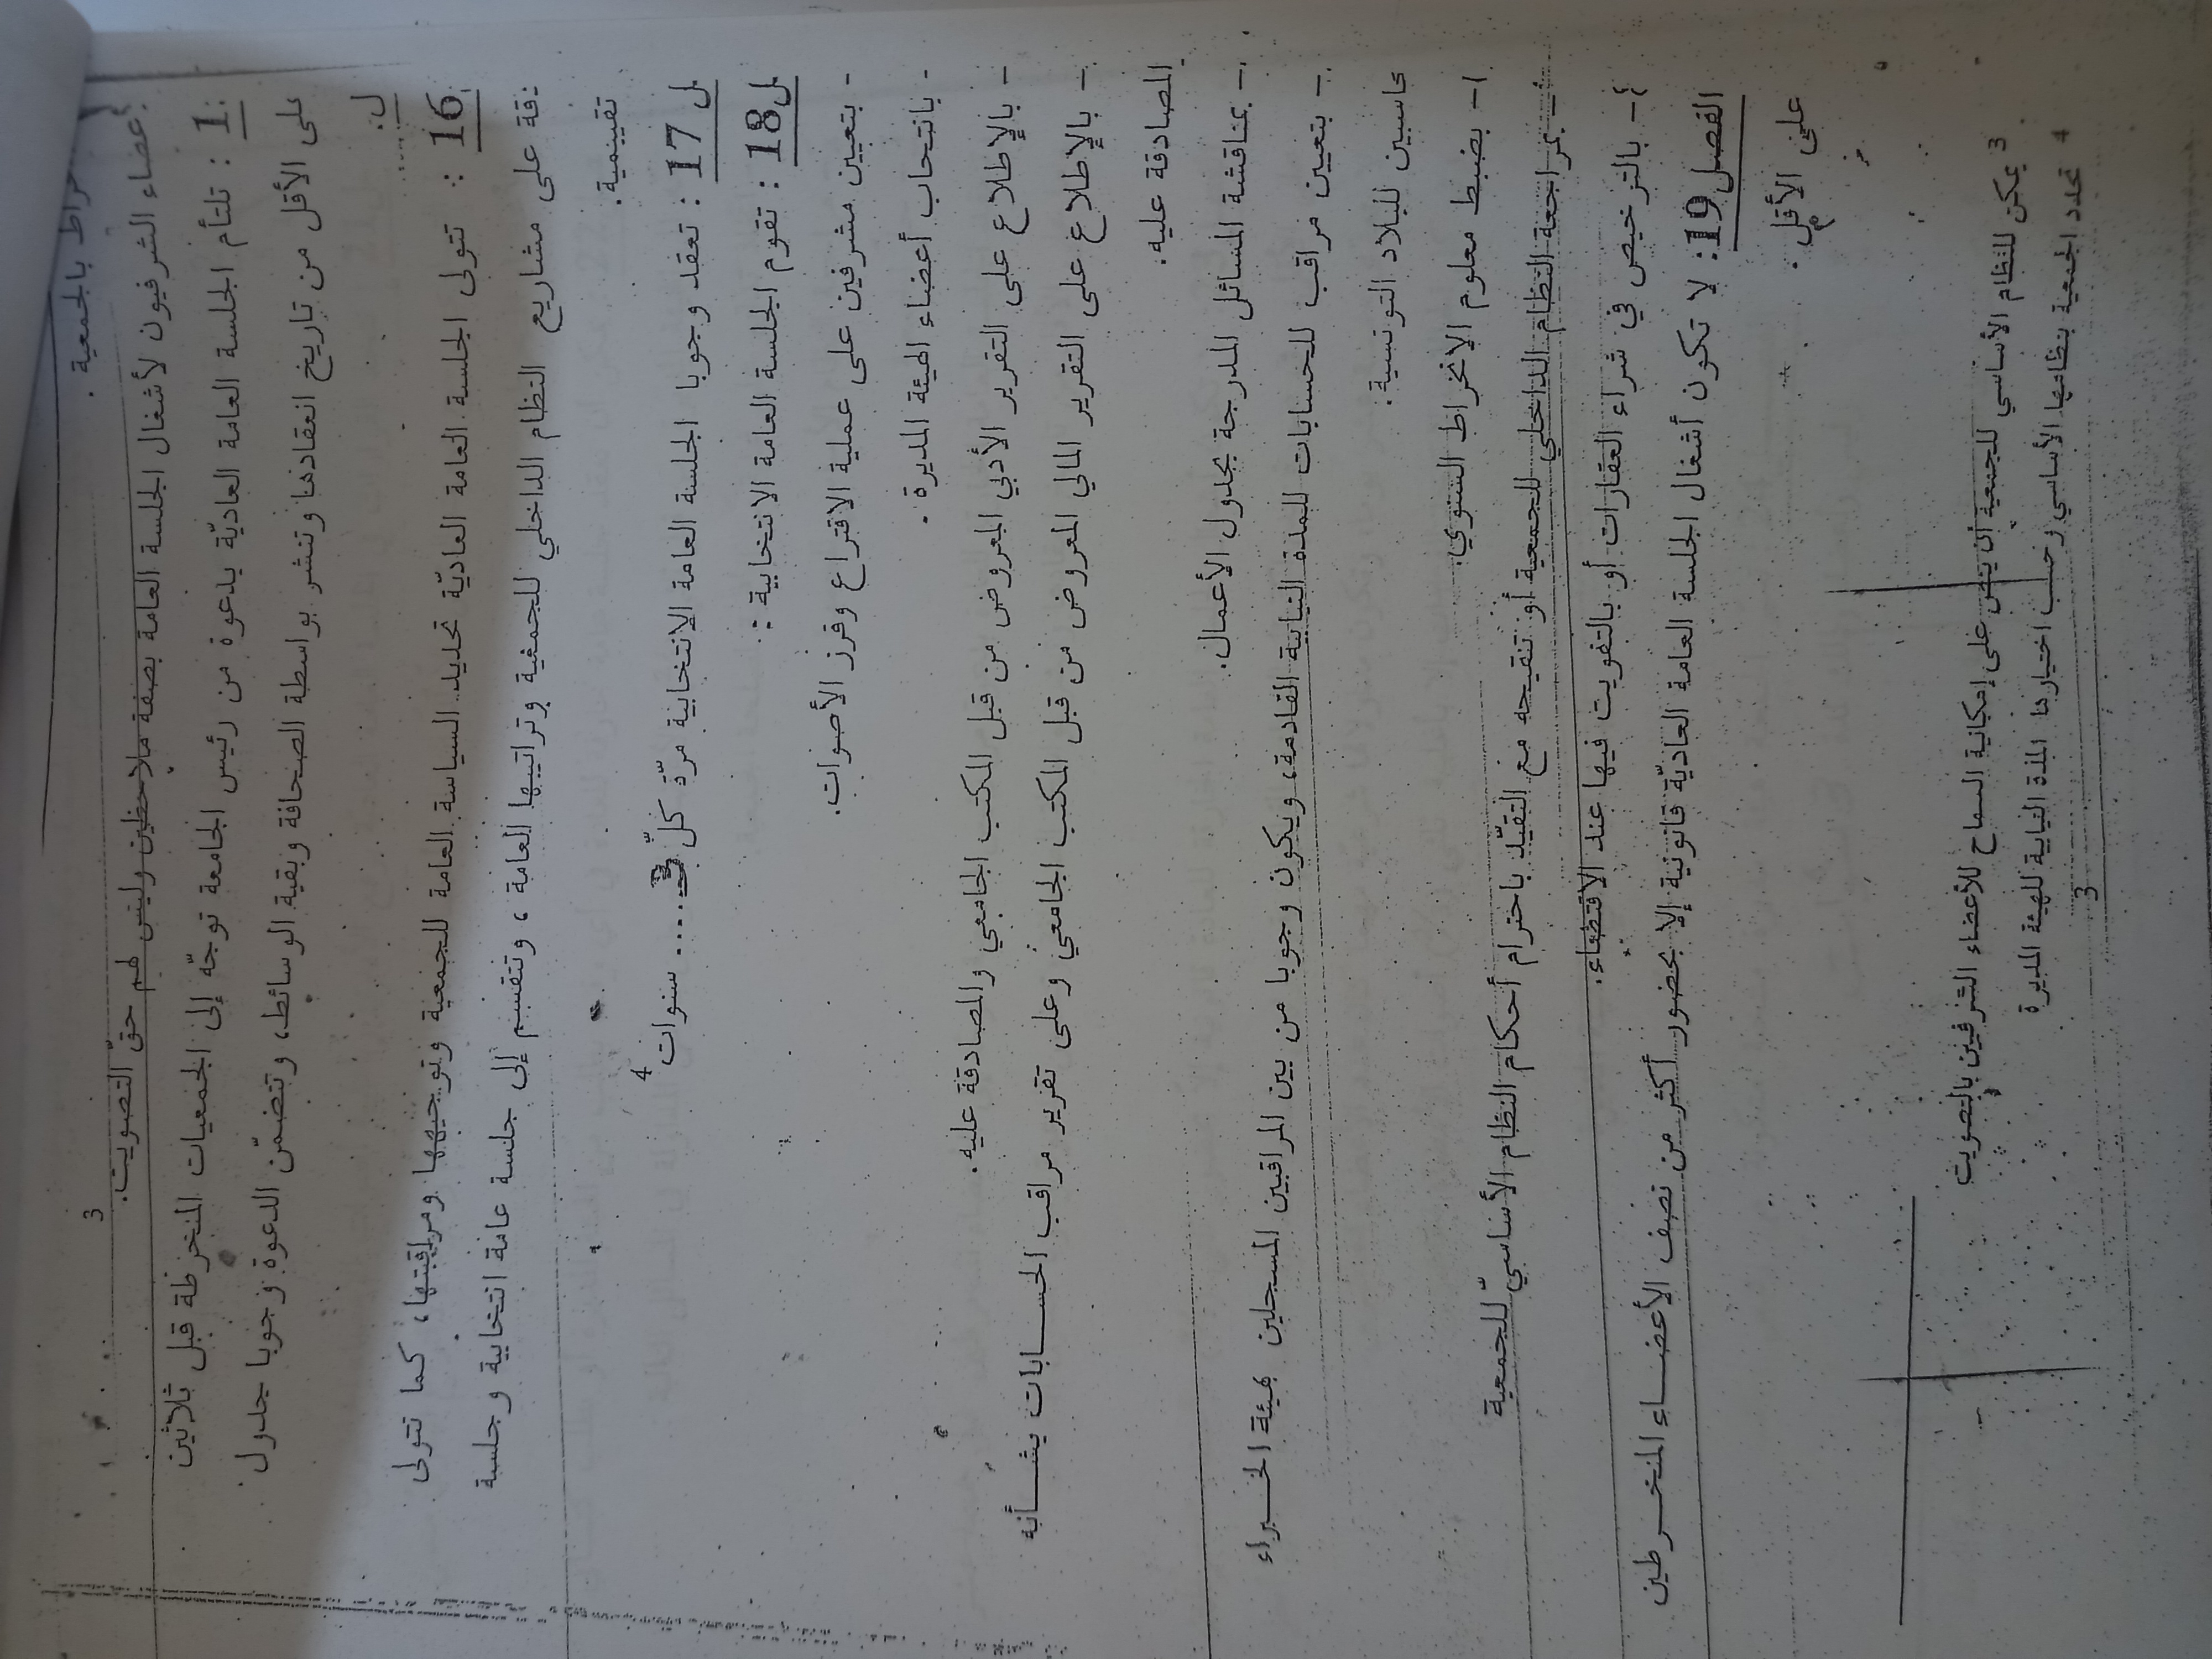 خراط بالجمعية .
أعضاء الشرفيون لأشغال الجلسة العامة بصفة ملاحظين وليس لهم حقّ التصويت. 3
1 : تلتأم الجلسة العامة العاديّة بدعوة من رئيس الجامعة توجّه إلى الجمعيات المنخرطة قبل ثلاثين
على الأقل من تاريخ انعقادها وتنشر بواسطة الصحافة وبقية الوسائط، وتتضمّن الدعوة وجوبا جدول
ل.
16 : تتولى الجلسة العامة العاديّة تحديد السياسة العامة للجمعية وتوجيهها ومراقبتها، كما تتولى
دقة على مشاريع النظام الداخلي للجمعية وتراتيبها العامة ، وتنقسم إلى جلسة عامة انتخابية وجلسة
تقييمية.
ل 17 : تعقد وجوبا الجلسة العامة الانتخابية مرّة كلّ .... سنوات 4
ل 18 : تقوم الجلسة العامة الانتخابية :
- بتعيين مشرفين على عملية الاقتراع وفرز الأصوات.
- بانتخاب أعضاء الهيئة المديرة .
- بالإطلاع على التقرير الأدبي المعروض من قبل المكتب الجامعي والمصادقة عليه.
- بالإطلاع على التقرير المالي المعروض من قبل المكتب الجامعي وعلى تقرير مراقب الحسابات بشأنه
المصادقة عليه.
- بمناقشة المسائل المدرجة بجدول الأعمال.
- بتعيين مراقب للحسابات للمدة النيابية القادمة، ويكون وجوبا من بين المراقبين المسجلين بهيئة الخبراء
حاسبين للبلاد التونسية.
- بضبط معلوم الانخراط السنوي
- بمراجعة النظام الداخلي للجمعية أو تنقيحه مع التقيّد باحترام أحكام النظام الأساسيّ للجمعية
- بالترخيص في شراء العقارات أو بالتفويت فيها عند الاقتضاء.
الفصل 19: لا تكون أشغال الجلسة العامة العاديّة قانونية إلا بحضور أكثر من نصف الأعضاء المنخرطين
على الأقل .
3 يمكن للنظام الأساسي للجمعية أن ينص على إمكانية السماح للأعضاء الشرفيين بالتصويت
4 تحدد الجمعية بنظامها الأساسي وحسب اختيارها المدة النيابية للهيئة المديرة
3